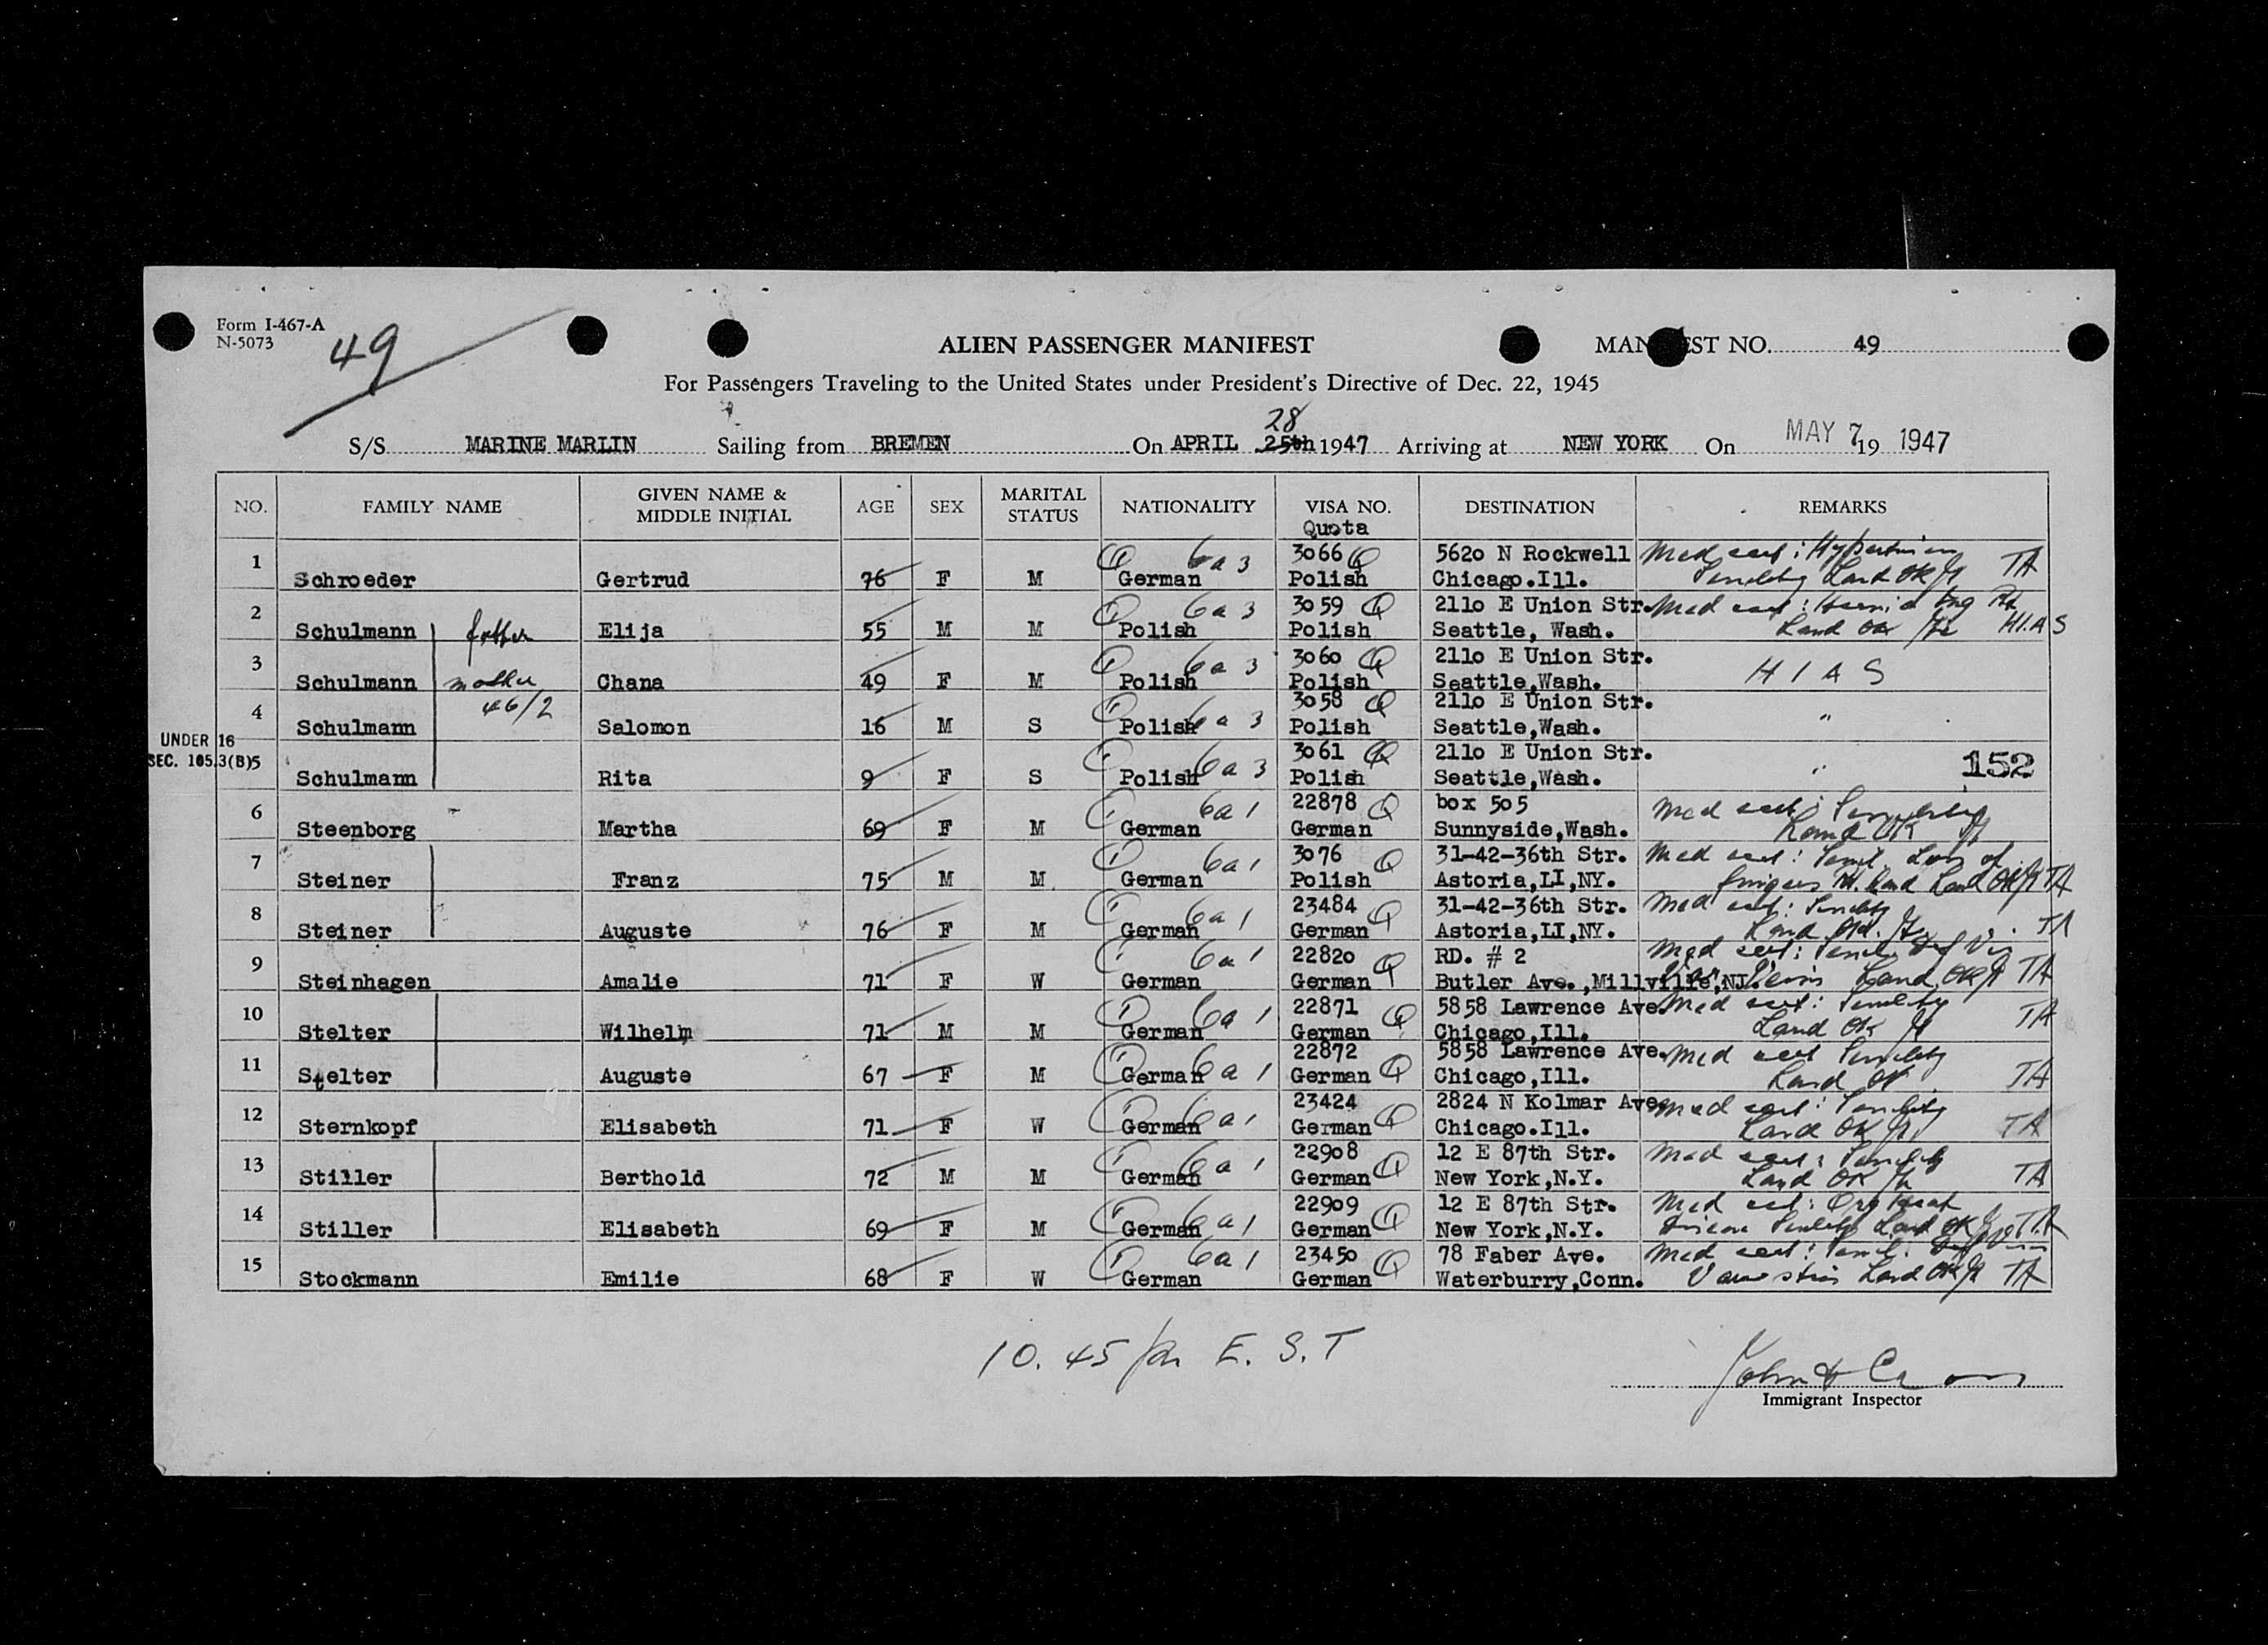 Form I-467-A
N-5073
49
ALIEN PASSENGER MANIFEST
MAN ST NO. 49
For Passengers Traveling to the United States under President's Directive of Dec. 22, 1945
28
S/S MARINE MARLIN Sailing from BREMEN On APRIL 25th 1947 Arriving at NEW YORK On MAY 7 19 1947
NO. FAMILY NAME GIVEN NAME & MIDDLE INITIAL AGE SEX MARITAL STATUS NATIONALITY VISA NO. DESTINATION REMARKS
Quota
1 6a3 3066 Q 5620 N Rockwell Med cert:
Schroeder Gertrud 76 F M German Polish Chicago.Ill. Land OK TA
2 6a3 3059 Q 2110 E Union Str. Med cert: Hernia
Schulmann father Elija 55 M M Polish Polish Seattle, Wash. Land OK HIAS
3 6a3 3060 Q 2110 E Union Str.
Schulmann mother Chana 49 F M Polish Polish Seattle,Wash. HIAS
4 46/2 3058 Q 2110 E Union Str.
Schulmann Salomon 16 M S Polish 6a3 Polish Seattle,Wash. "
UNDER 16
SEC. 105.3(B) 5 3061 Q 2110 E Union Str.
Schulmann Rita 9 F S Polish 6a3 Polish Seattle,Wash. " 152
6 6a1 22878 Q box 505 Med cert: Senility
Steenborg Martha 69 F M German German Sunnyside,Wash. Land OK
7 6a1 3076 Q 31-42-36th Str. Med cert: Senil. Loss of
Steiner Franz 75 M M German Polish Astoria,LI,NY. fingers Rt. hand Land OK TA
8 6a1 23484 Q 31-42-36th Str. Med cert: Senility
Steiner Auguste 76 F M German German Astoria,LI,NY. Land TA
9 6a1 22820 Q RD. # 2 Med cert:
Steinhagen Amalie 71 F W German German Butler Ave.,Millville,NJ. Land OK TA
10 6a1 22871 Q 5858 Lawrence Ave. Med cert: Senility
Stelter Wilhelm 71 M M German German Chicago,Ill. Land OK TA
11 22872 Q 5858 Lawrence Ave. Med cert Senility
Stelter Auguste 67 F M German 6a1 German Chicago,Ill. Land OK TA
12 23424 Q 2824 N Kolmar Ave. Med cert: Senility
Sternkopf Elisabeth 71 F W German 6a1 German Chicago.Ill. Land OK TA
13 6a1 22908 Q 12 E 87th Str. Med cert: Senility
Stiller Berthold 72 M M German German New York,N.Y. Land OK TA
14 22909 Q 12 E 87th Str. Med cert: Org heart
Stiller Elisabeth 69 F M German 6a1 German New York,N.Y. Senility Land OK TA
15 6a1 23450 Q 78 Faber Ave. Med cert: Senil.
Stockmann Emilie 68 F W German German Waterburry,Conn. Land OK TA
10.45 E.S.T
John
Immigrant Inspector